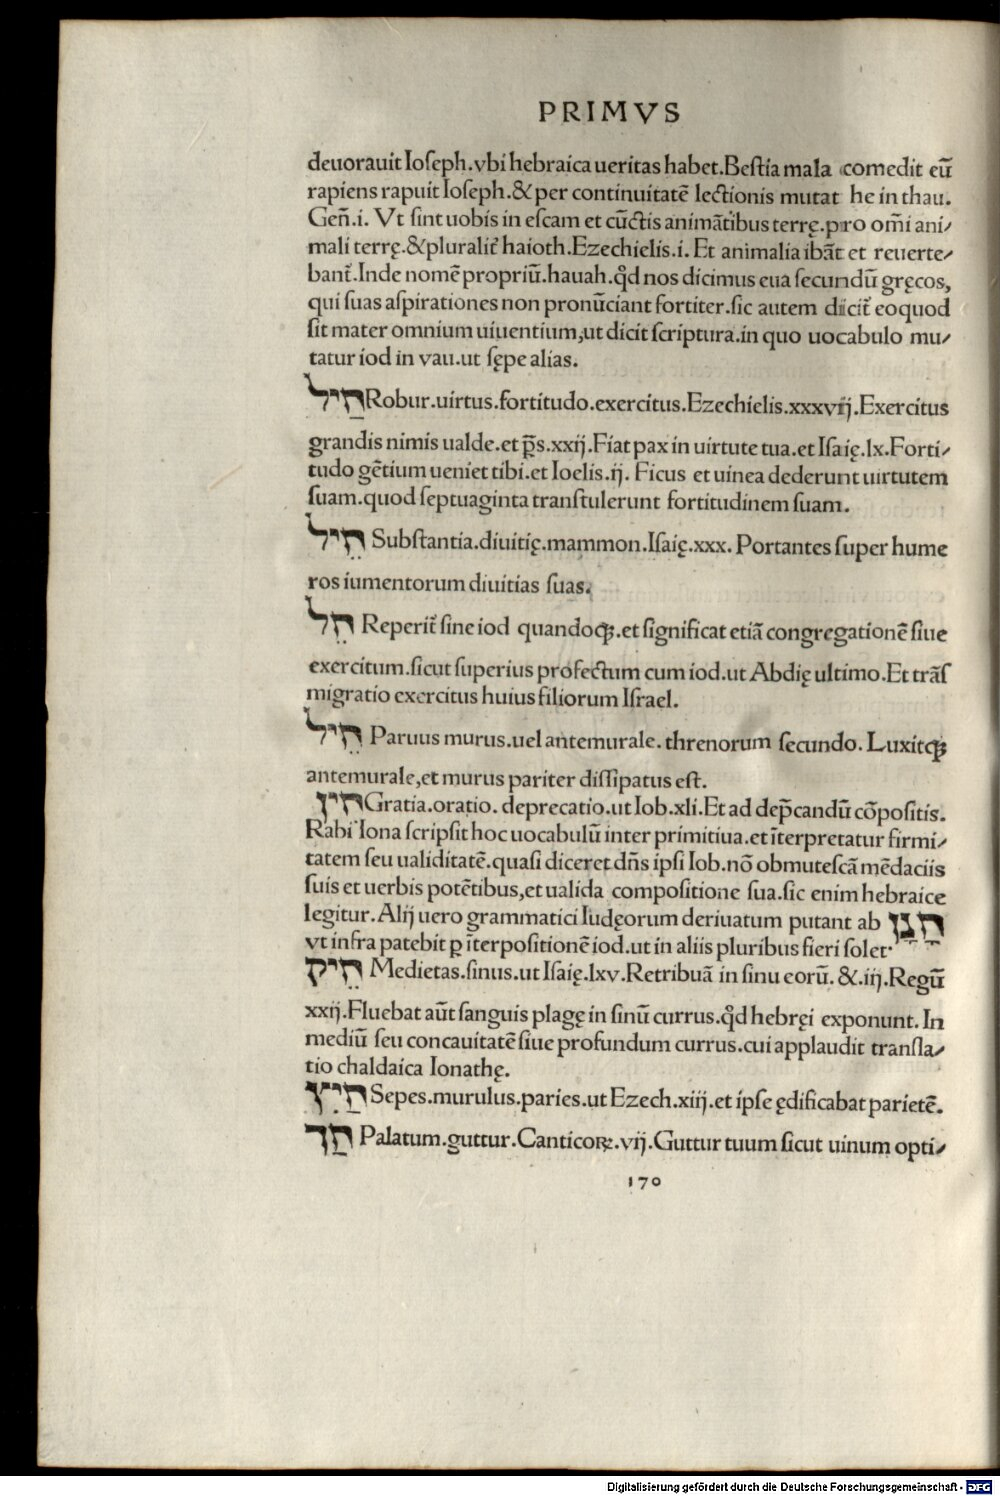 PRIMVS
deuorauit Ioſeph.vbi hebraica ueritas habet.Beſtia mala comedit eū
rapiens rapuit Ioſeph.& per continuitatē lectionis mutat he in thau.
Geñ.i. Vt ſint uobis in eſcam et cūctis animātibus terrę.pro om̄i ani/
mali terrę.&pluralit̃ haioth.Ezechielis.i. Et animalia ibāt et reuerte/
bant̃.Inde nomē propriū.hauah.qd̓ nos dicimus eua ſecundū gręcos,
qui ſuas aſpirationes non pronūciant fortiter.ſic autem dicit̃ eoquod
ſit mater omnium uiuentium,ut dicit ſcriptura.in quo uocabulo mu/
tatur iod in vau.ut ſępe alias.
חַיִל Robur.uirtus.fortitudo.exercitus.Ezechielis.xxxvij.Exercitus
grandis nimis ualde.et p̄s.xxij.Fiat pax in uirtute tua.et Iſaię.lx.Forti/
tudo gētium ueniet tibi.et Ioelis.ij. Ficus et uinea dederunt uirtutem
ſuam.quod ſeptuaginta tranſtulerunt fortitudinem ſuam.
חֵיל Subſtantia.diuitię.mammon.Iſaię.xxx. Portantes ſuper hume
ros iumentorum diuitias ſuas.
חֵל Reperit̃ ſine iod quandoqꝫ.et ſignificat etiā congregationē ſiue
exercitum.ſicut ſuperius profectum cum iod.ut Abdię ultimo.Et trāſ
migratio exercitus huius filiorum Iſrael.
חֵיל Paruus murus.uel antemurale. threnorum ſecundo. Luxitqꝫ
antemurale,et murus pariter diſſipatus eſt.
חִין Gratia.oratio. deprecatio.ut Iob.xli.Et ad dep̄candū cōpoſitis.
Rabi Iona ſcripſit hoc uocabulū inter primitiua.et īterpretatur firmi/
tatem ſeu ualiditatē.quaſi diceret dn̄s ipſi Iob.nō obmuteſcā mēdaciis
ſuis et uerbis potētibus,et ualida compoſitione ſua.ſic enim hebraice
legitur.Alij uero grammatici Iudęorum deriuatum putant ab חָנַן
vt infra patebit ꝑ īterpoſitionē iod.ut in aliis pluribus fieri ſolet·
חֵיק Medietas.ſinus.ut Iſaię.lxv.Retribuā in ſinu eorū. &.iij.Regū
xxij.Fluebat aūt ſanguis plagę in ſinū currus.qd̓ hebręi exponunt. In
mediū ſeu concauitatē ſiue profundum currus.cui applaudit tranſla/
tio chaldaica Ionathę.
חַיִץ Sepes.murulus.paries.ut Ezech.xiij.et ipſe ędificabat parietē.
חֵךְ Palatum.guttur.Canticoꝝ.vij.Guttur tuum ſicut uinum opti/
170
Digitalisierung gefördert durch die Deutsche Forschungsgemeinschaft - DFG